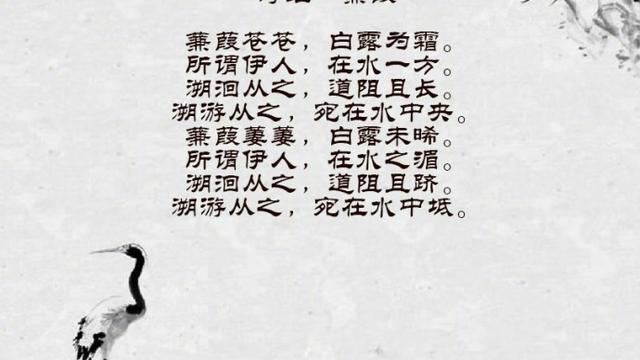 蒹葭苍苍，白露为霜。
所谓伊人，在水一方。
溯洄从之，道阻且长。
溯游从之，宛在水中央。
蒹葭萋萋，白露未晞。
所谓伊人，在水之湄。
溯洄从之，道阻且跻。
溯游从之，宛在水中坻。